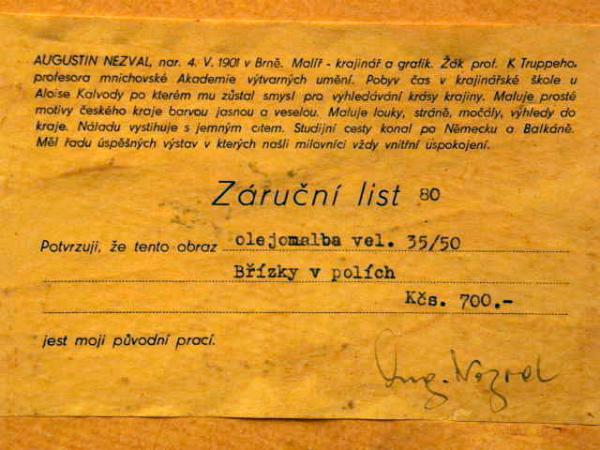 AUGUSTIN NEZVAL, nar. 4. V. 1901 v Brně. Malíř - krajinář a grafik. Žák prof. K Truppeho,
profesora mnichovské Akademie výtvarných umění. Pobyv čas v krajinářské škole u
Aloise Kalvody po kterém mu zůstal smysl pro vyhledávání krásy krajiny. Maluje prosté
motivy českého kraje barvou jasnou a veselou. Maluje louky, stráně, močály, výhledy do
kraje. Náladu vystihuje s jemným citem. Studijní cesty konal po Německu a Balkáně.
Měl řadu úspěšných výstav v kterých našli milovníci vždy vnitřní uspokojení.
Záruční list 80
Potvrzuji, že tento obraz olejomalba vel. 35/50
Břízky v polích
Kčs. 700.-
jest mojí původní prací.
Aug. Nezval